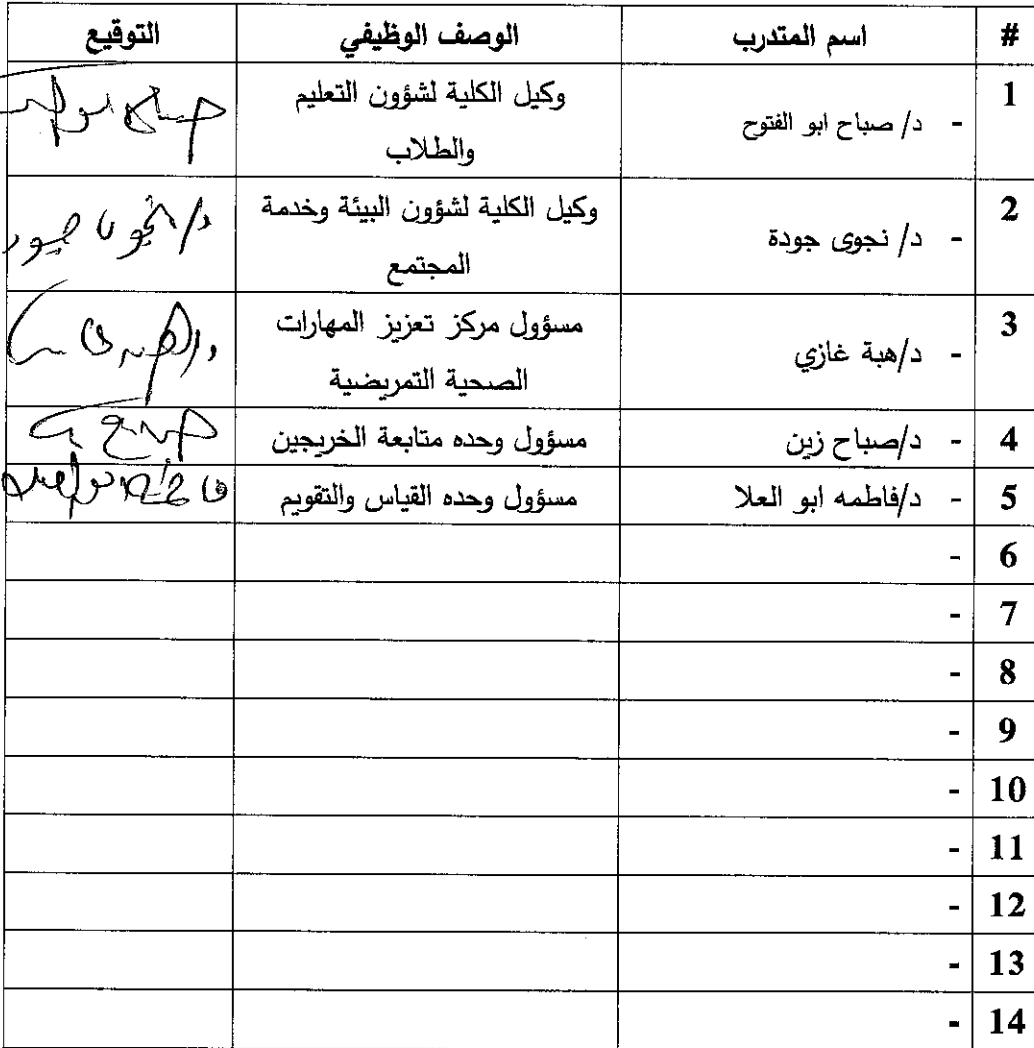 # اسم المتدرب الوصف الوظيفي التوقيع
1 - د/ صباح ابو الفتوح وكيل الكلية لشؤون التعليم
والطلاب
2 - د/ نجوى جودة وكيل الكلية لشؤون البيئة وخدمة
المجتمع
3 - د/هبة غازي مسؤول مركز تعزيز المهارات
الصحية التمريضية
4 - د/صباح زين مسؤول وحده متابعة الخريجين
5 - د/فاطمه ابو العلا مسؤول وحده القياس والتقويم
6 -
7 -
8 -
9 -
10 -
11 -
12 -
13 -
14 -